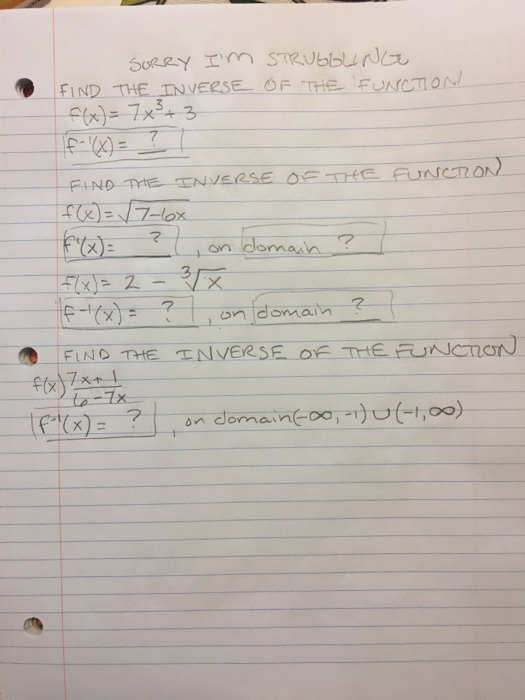 SORRY I'M STRUBBLING
FIND THE INVERSE OF THE FUNCTION!
f(x) = 7x³ + 3
f⁻¹(x) = ?
FIND THE INVERSE OF THE FUNCTION
f(x) = √7-6x
f⁻¹(x) = ? , on domain ?
f(x) = 2 - ³√x
f⁻¹(x) = ? , on domain ?
FIND THE INVERSE OF THE FUNCTION
f(x) 7x+1
6-7x
f⁻¹(x) = ? , on domain (-∞, -1) ∪ (-1, ∞)